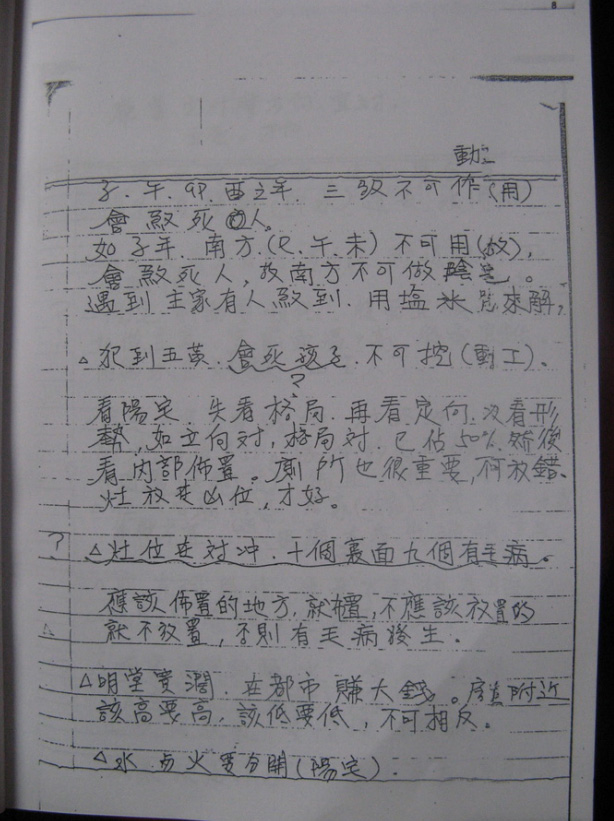 8
動土
子.午.卯.酉之年.三煞不可作(用)
會煞死人。
如子年.南方.(巳.午.未)不可用(故),
會煞死人,故南方不可做陰宅。
遇到主家有人煞到.用塩米 來解,
△犯到五黃.會死孩子.不可挖(動工)、
?
看陽宅.先看格局.再看定向.次看形
勢,如立向対,格局対.已佔50%.然後
看內部佈置。廁所也很重要,何放錯、
灶放在凶位,才好。
? △灶位在対冲.十個裏面九個有毛病。
應該佈置的地方,就 ,不應該放置的
就不放置,否則有毛病發生.
△明堂寬濶.在都市賺大錢。房宅附近
該高要高,該低要低,不可相反。
△水与火要分開(陽宅).